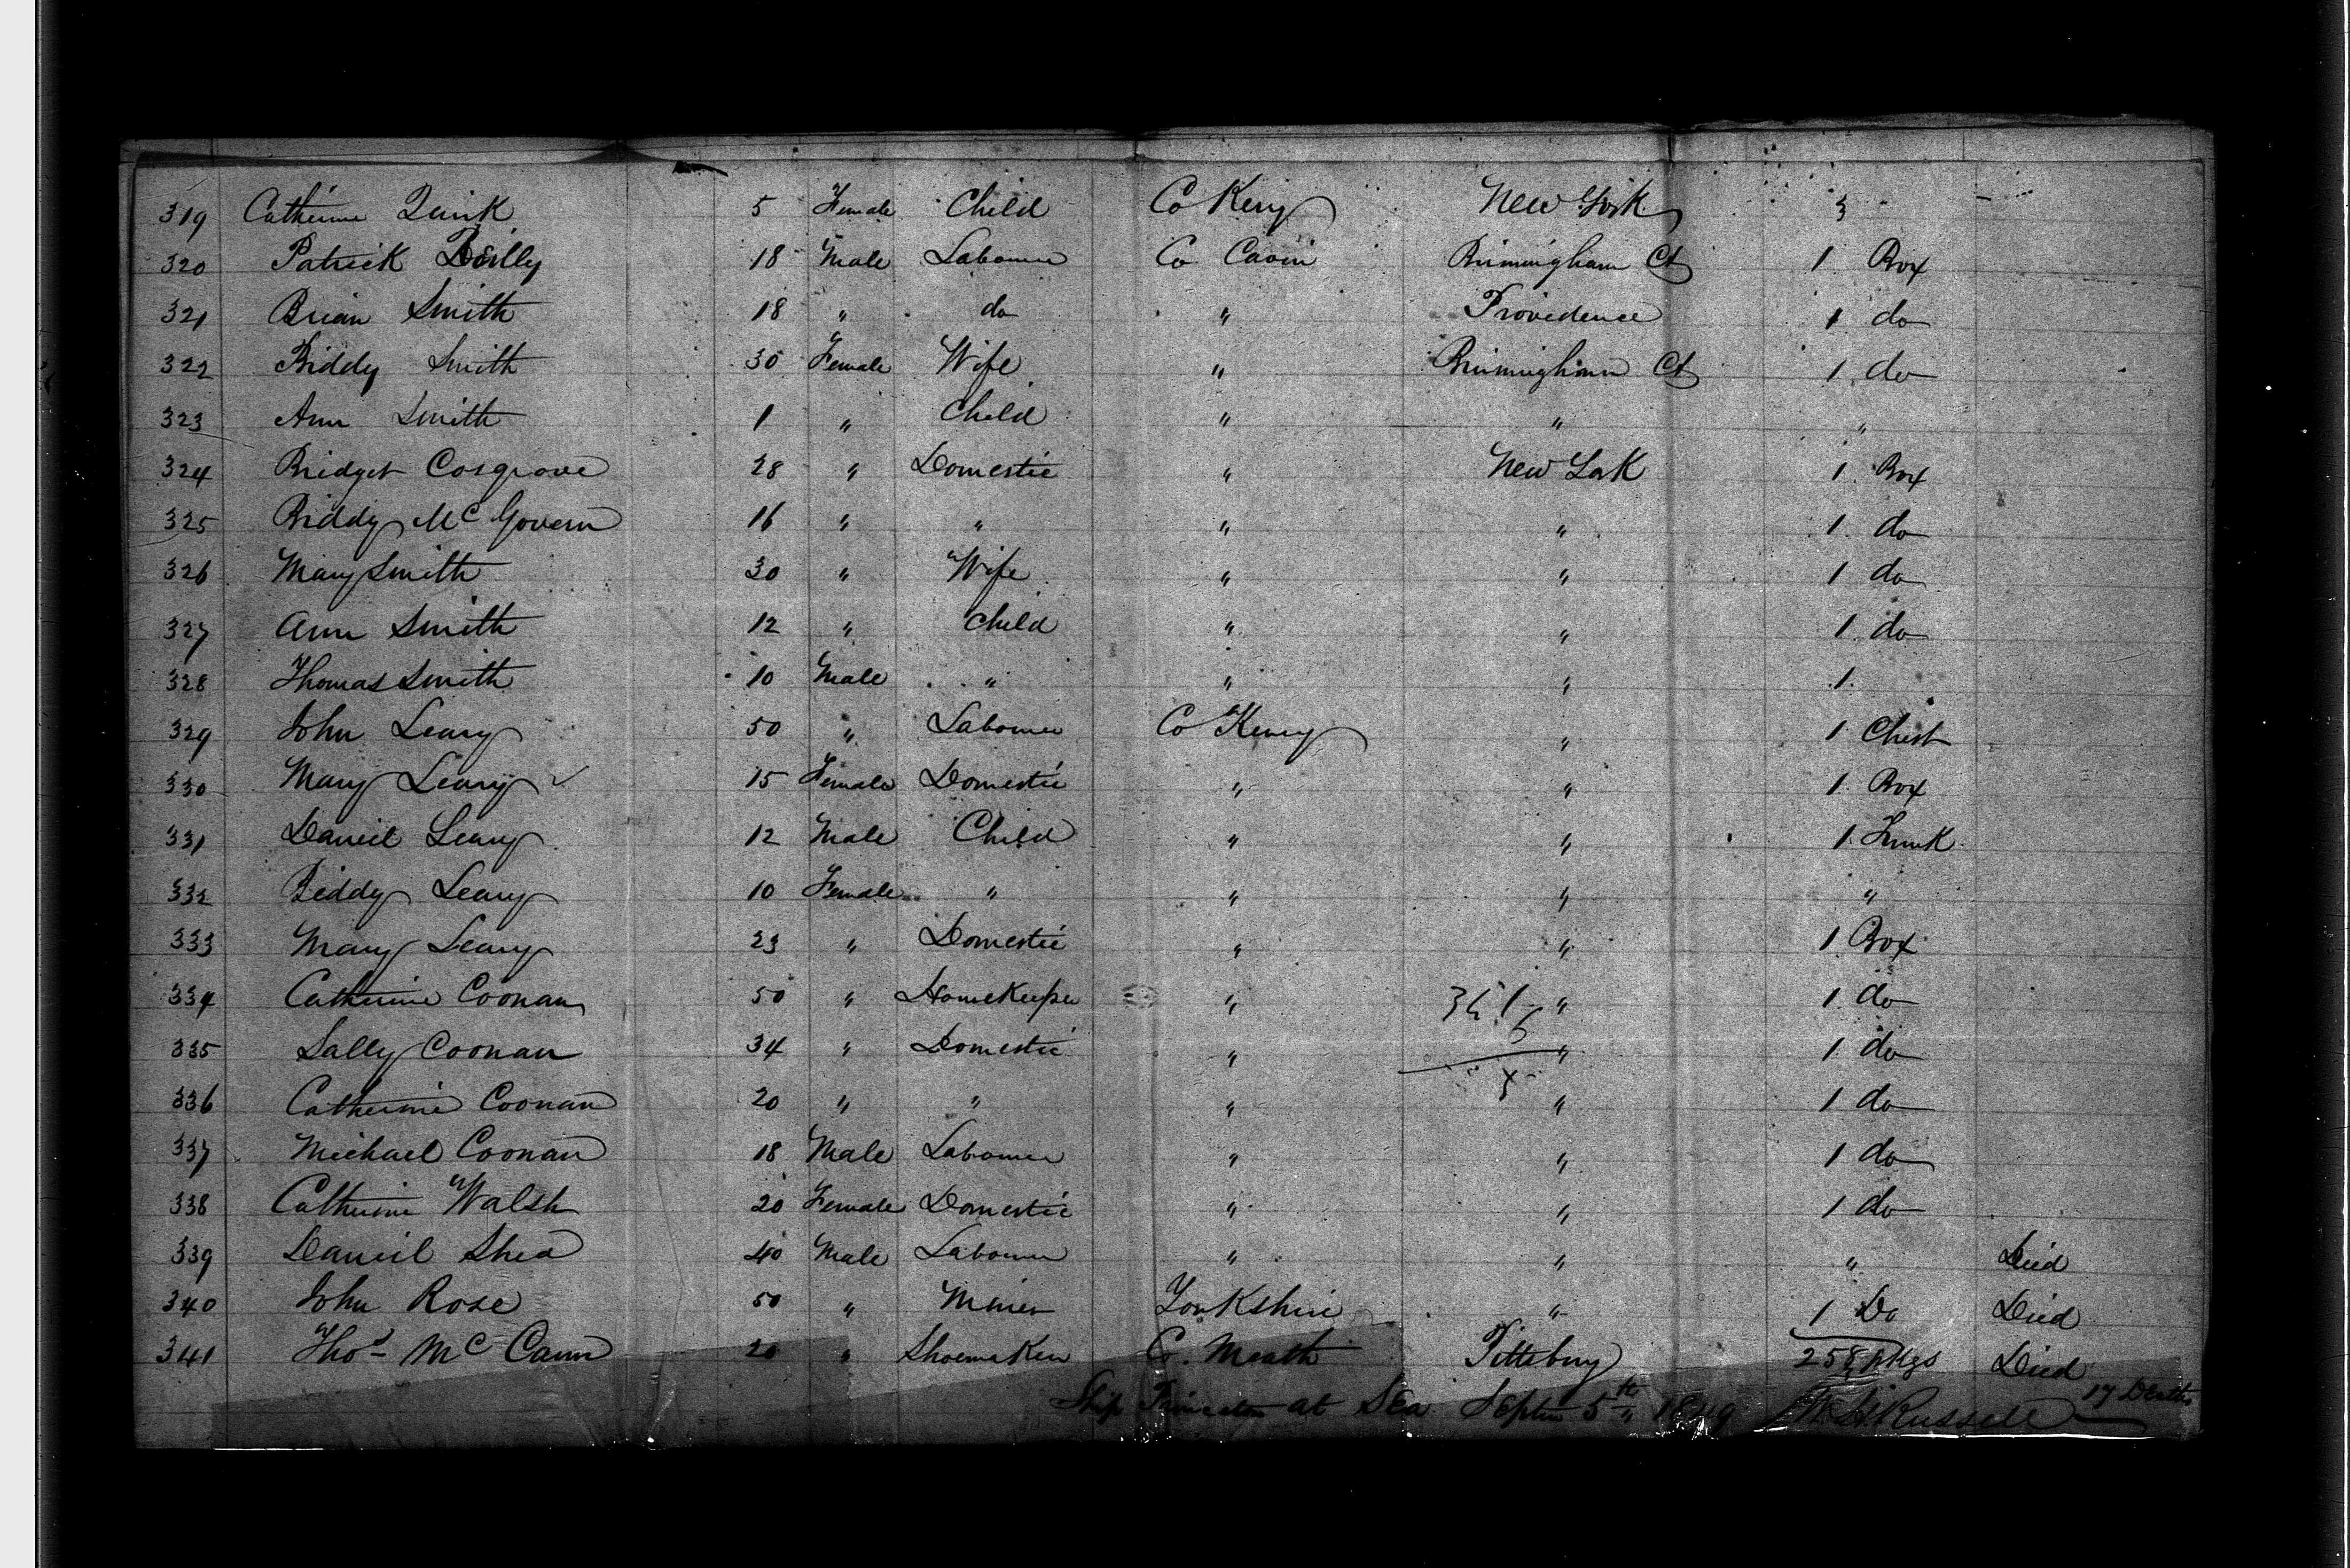 319 Catherine Quirk 5 Female Child Co Kerry New York
320 Patrick Reilly 18 Male Labourer Co Cavin Birmingham Ct 1 Box
321 Brian Smith 18 " do " Providence 1 do
322 Biddy Smith 30 Female Wife " Birmingham Ct 1 do
323 Ann Smith 1 " Child " " "
324 Bridget Cosgrove 28 " Domestic " New York 1 Box
325 Biddy McGovern 16 " " " " 1 do
326 Mary Smith 30 " Wife " " 1 do
327 Ann Smith 12 " Child " " 1 do
328 Thomas Smith 10 Male " " " 1
329 John Leary 50 " Labourer Co Kerry " 1 Chest
330 Mary Leary 15 Female Domestic " " 1 Box
331 Daniel Leary 12 Male Child " " 1 Trunk
332 Biddy Leary 10 Female " " " "
333 Mary Leary 23 " Domestic " " 1 Box
334 Catherine Coonan 50 " HouseKeeper " " 1 do
335 Sally Coonan 34 " Domestic " " 1 do
336 Catherine Coonan 20 " " " " 1 do
337 Michael Coonan 18 Male Labourer " " 1 do
338 Catherine Walsh 20 Female Domestic " " 1 do
339 Daniel Shea 40 Male Labourer " " " Died
340 John Rose 50 " Miner YorKshire " 1 Do Died
341 Thos McCann 20 " ShoemaKer C. Meath Pittsburg 258 pKgs Died
Ship Princeton at Sea Septem 5th 1849 Russell 17 Deaths